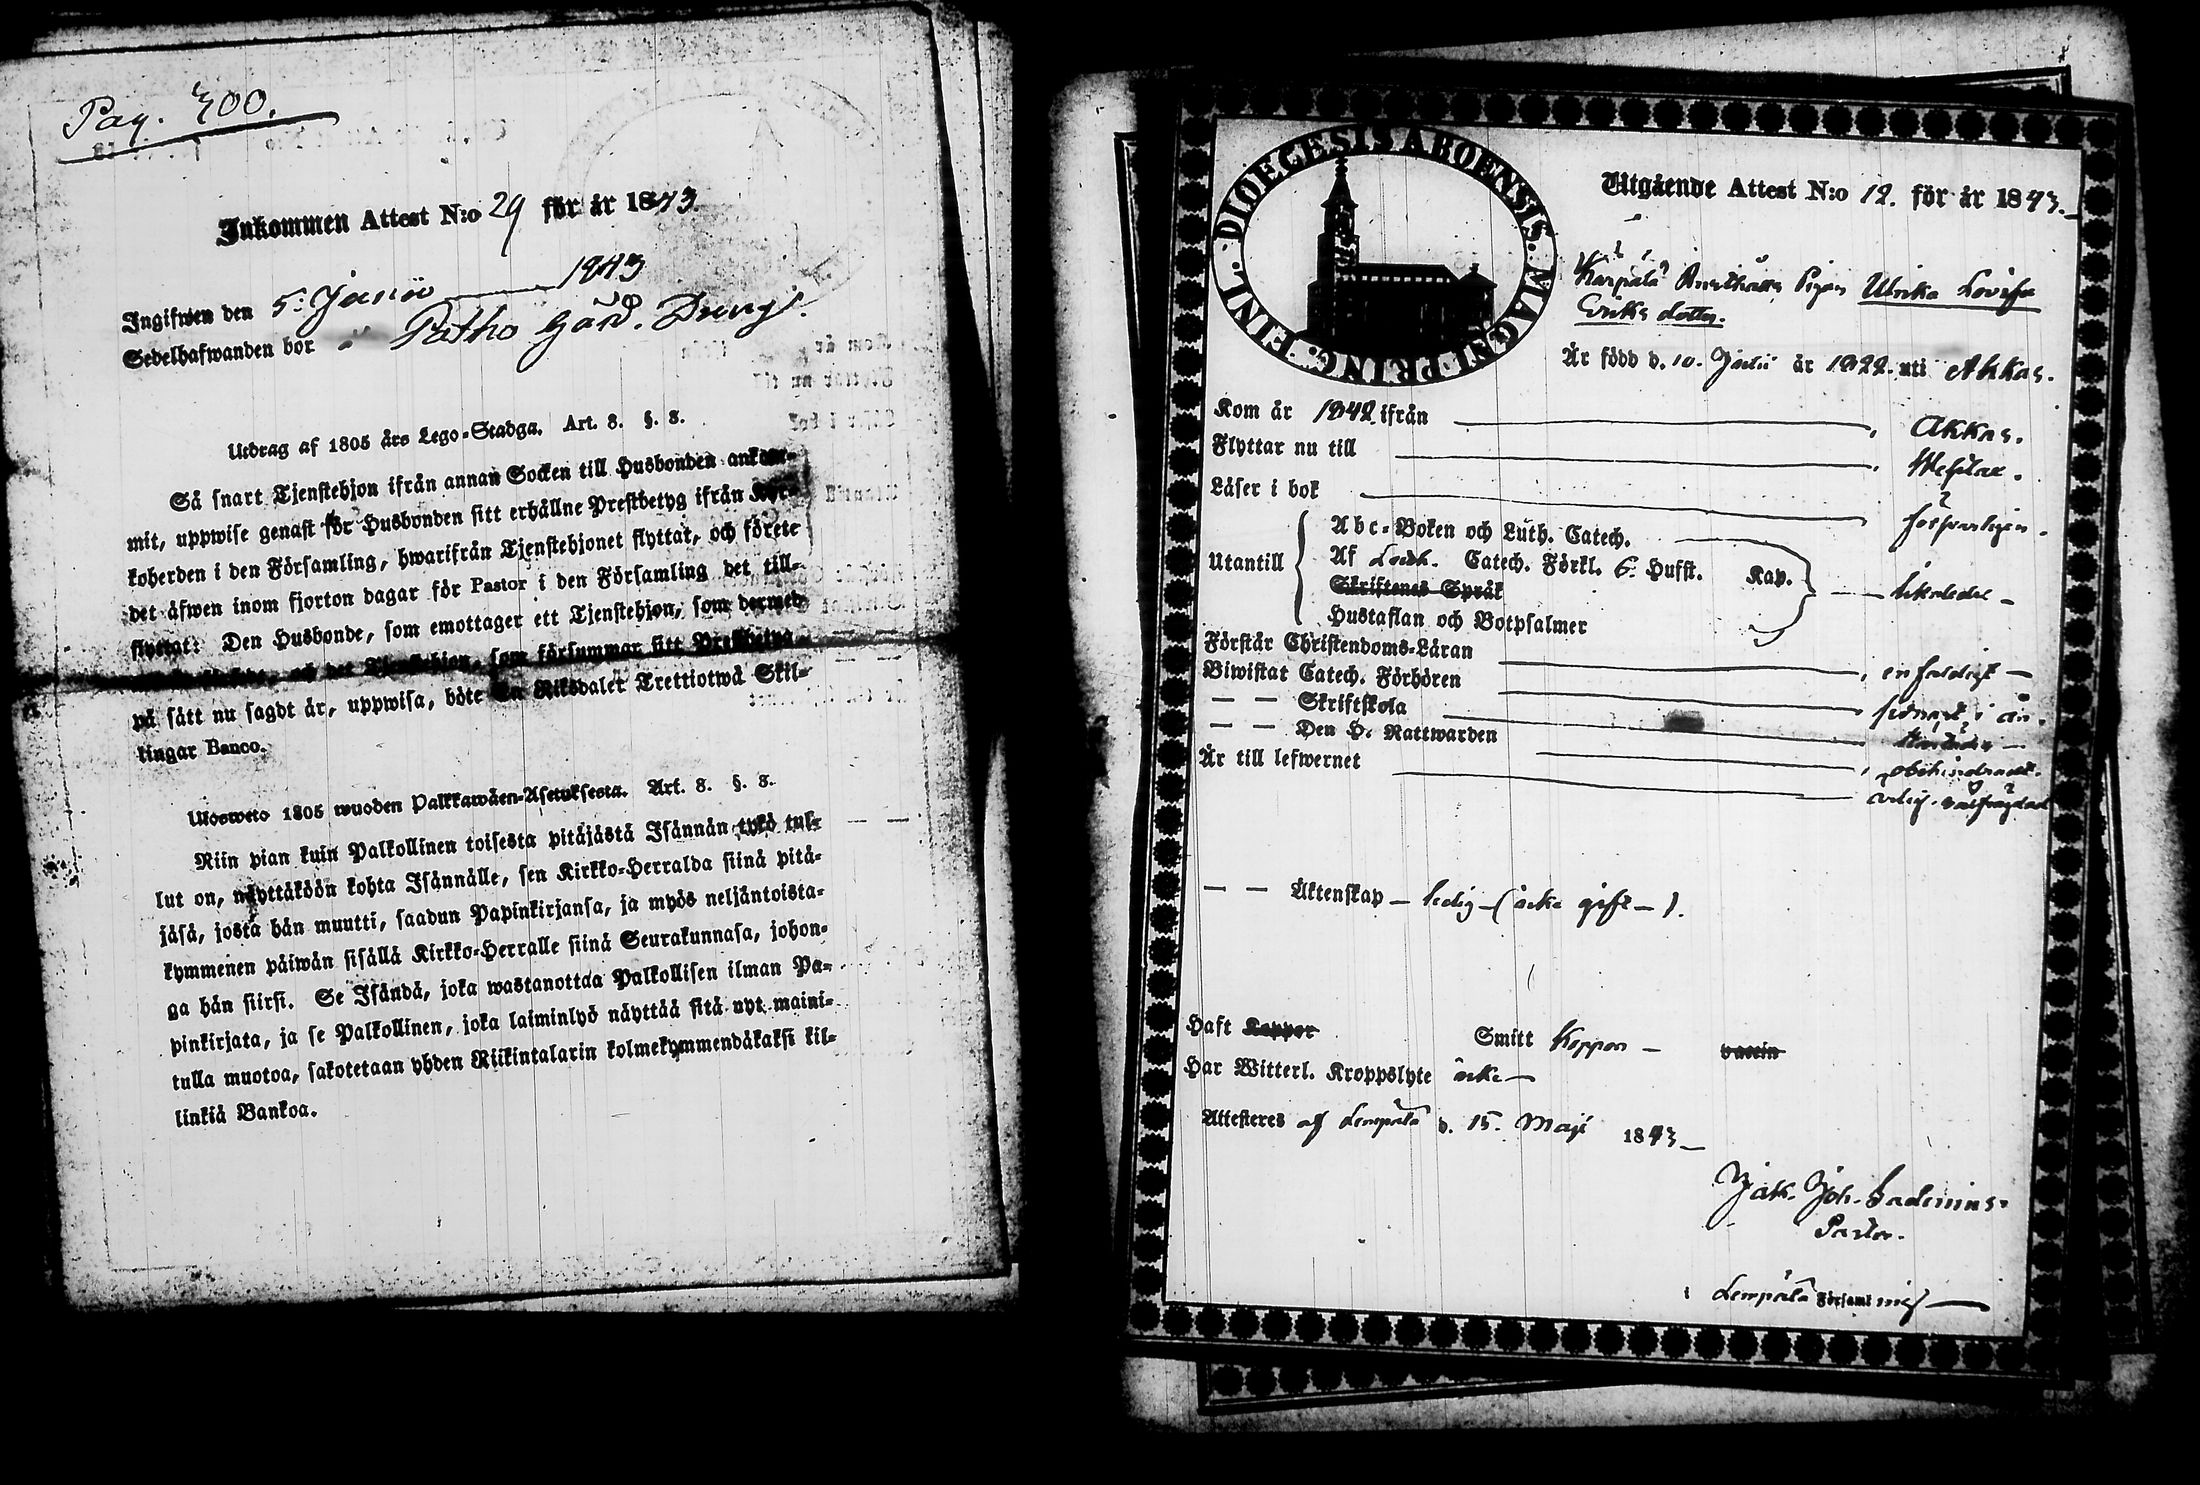 Pag. 400.
Inkommen Attest N:o 29 för år 1843.
Ingifwen den 5. Junii 1843
Sedelhafwanden bor å Patho Gård. Drengs.
Utdrag af 1805 års Lego-Stadga. Art. 8. §. 8.
Så snart Tjenstehjon ifrån annan Socken till Husbonden ankom-
mit, uppwise genast för Husbonden sitt erhållne Prestbetyg ifrån Kyr-
koherden i den Församling, hwarifrån Tjenstehjonet flyttat, och förete
det äfwen inom fjorton dagar för Pastor i den Församling det till-
flyttat: Den Husbonde, som emottager ett Tjenstehjon, som dermed
och det Tjenstehjon, som försummar sitt Prestbetyg
på sätt nu sagdt är, uppwisa, böte En Riksdaler Trettiotwå Skil-
lingar Banco.
Ulosweto 1805 wuoden Palkkawäen-Asetuksesta. Art. 8. §. 8.
Niin pian kuin Palkollinen toisesta pitäjästä Isännän tykö tul-
lut on, näyttäköön kohta Isännälle, sen Kirkko-Herralda siinä pitä-
jäsä, josta hän muutti, saadun Papinkirjansa, ja myös neljäntoista-
kymmenen päiwän sisällä Kirkko-Herralle siinä Seurakunnasa, johon-
ga hän siirsi. Se Isändä, joka wastanottaa Palkollisen ilman Pa-
pinkirjata, ja se Palkollinen, joka laiminlyö näyttää sitä nyt maini-
tulla muotoa, sakotetaan yhden Riikintalarin kolmekymmendäkaksi kil-
linkiä Bankoa.
DIOECESIS ABOENSIS. MAGNI PRINC. FINL.
Utgående Attest N:o 12. för år 1843.
Pigan Ulrika Lovisa
Eriks dotter.
Är född d. 10. Julii år 1822. uti Akkas.
Kom år 1842 ifrån Akkas.
Flyttar nu till Wesilax.
Läser i bok försvarligen.
Utantill
Abc-Boken och Luth. Catech.
Af Catech. Förkl. 6. Hufst. Kap.
Skriftenes Språk
Hustaflan och Botpsalmer
likaledes
Förstår Christendoms-Läran enfaldigt
Biwistat Catech. Förhören
— — Skriftskola
— — Den H. Nattwarden
Är till lefwernet obehindrad.
ärlig. välfrägdad
— — Äktenskap — ledig — (icke gift —).
Haft Koppor Smitt Koppor — vaccin
Har Witterl. Kroppslyte icke —
Attesteres af Lempälä d. 15. Maji 1843 —
Jak. Joh. Gadenius.
Pastor.
i Lempälä Församling